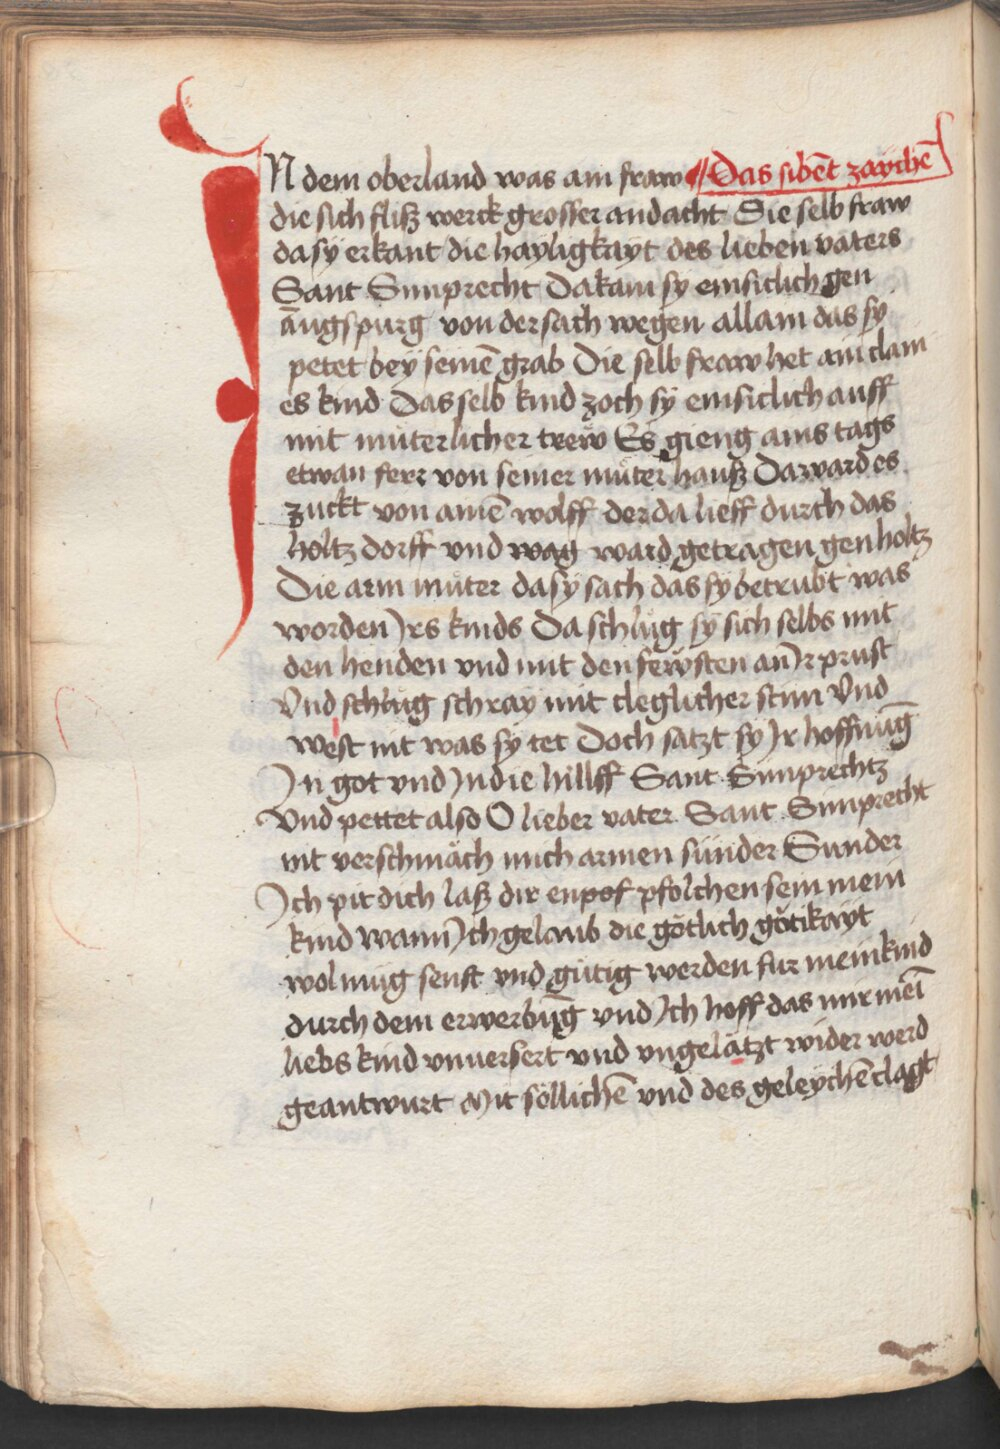 IN dem oberland was ain fraw ¶ Das sibēt zaychē
die sich fliß werck grosser andacht Die selb fraw
da sy erkant die hayligkayt des lieben vaters
Sant Simprecht Da kam sy emsiclich gen
augspurg von der sach wegen allain das sy
petet bey seinē grab Die selb fraw het ain clain
es kind Das selb kind zoch sy emsiclich auff
mit müterlicher trew Es gieng ains tags
etwan ferr von seiner müter hauß Da ward es
zuckt von ainē wolff der da lieff durch das
holtz dorff vnd wag ward getragen gen holtz
Die arm müter da sy sach das sy betrubt was
worden Irs kinds Da schlüg sy sich selbs mit
den henden vnd mit den fewsten an Ir prust
Vnd schlug schray mit cleglicher stim Vnd
west nit was sy tet Doch satzt sy Ir hoffnūg
In got vnd In die hillff Sant Simprechtz
Vnd pettet also O lieber vater Sant Simprecht
nit verschmäch mich armen sünder Sunder
Ich pit dich laß dir enpof pfolchen sein mein
kind Wann Ich gelaub die götlich gütikayt
wol müg senft vnd gütig werden fur mein kind
durch dein erwerbūg vnd Ich hoff das mir meī
liebs kind vnuersert vnd vngelätzt wider werd
geantwurt Mit söllichē vnd des geleychē clagt